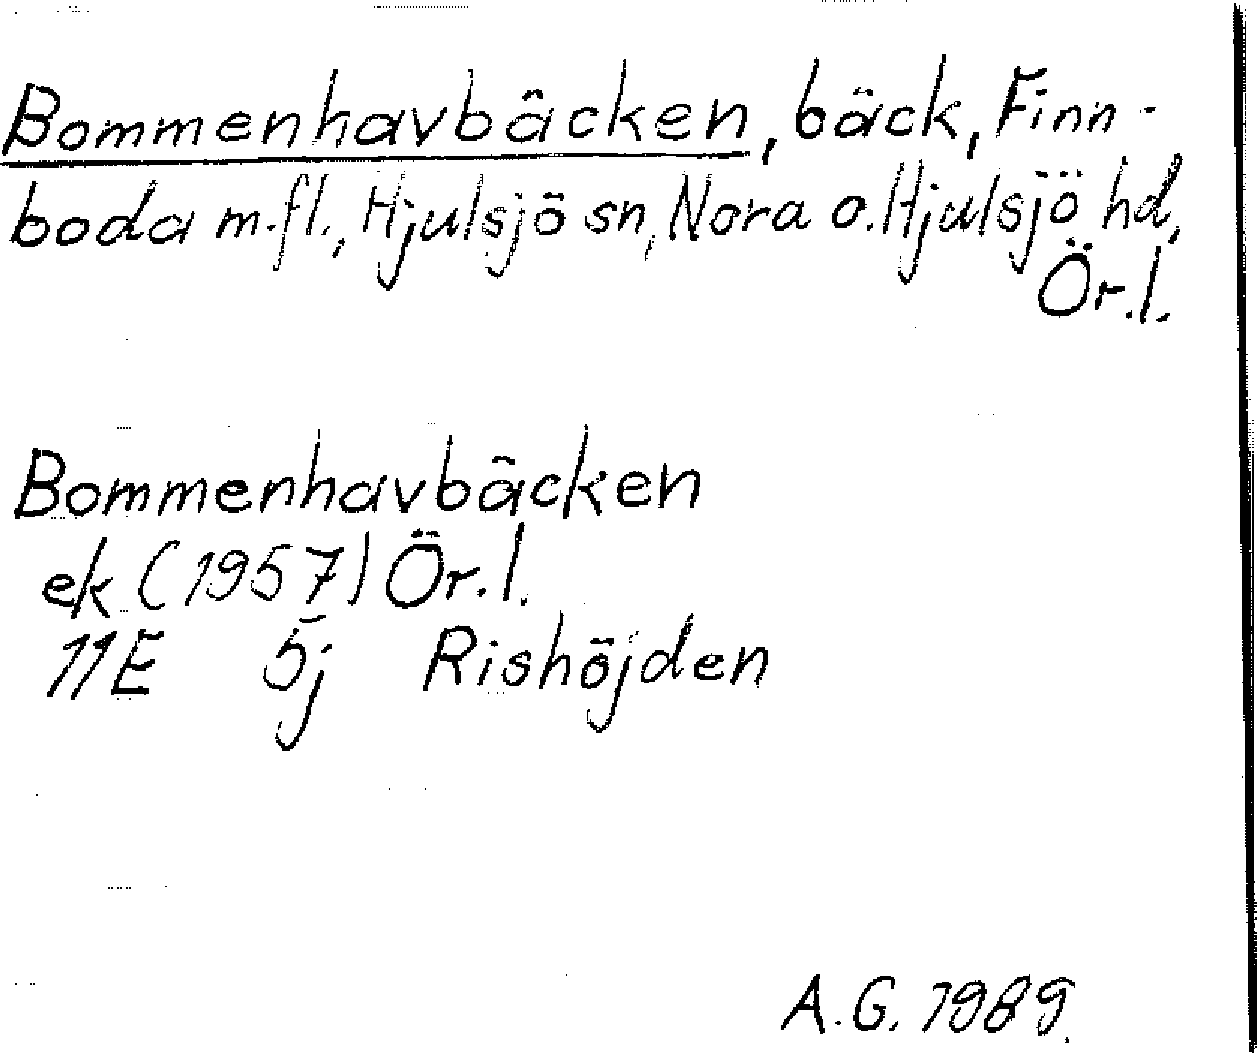 Bommenhavbäcken, bäck, Finn-
boda m.fl., Hjulsjö sn, Nora o. Hjulsjö hd,
Ör.l.
Bommenhavbäcken
ek (1957) Ör.l.
11E 5j Rishöjden
A.G. 1989.